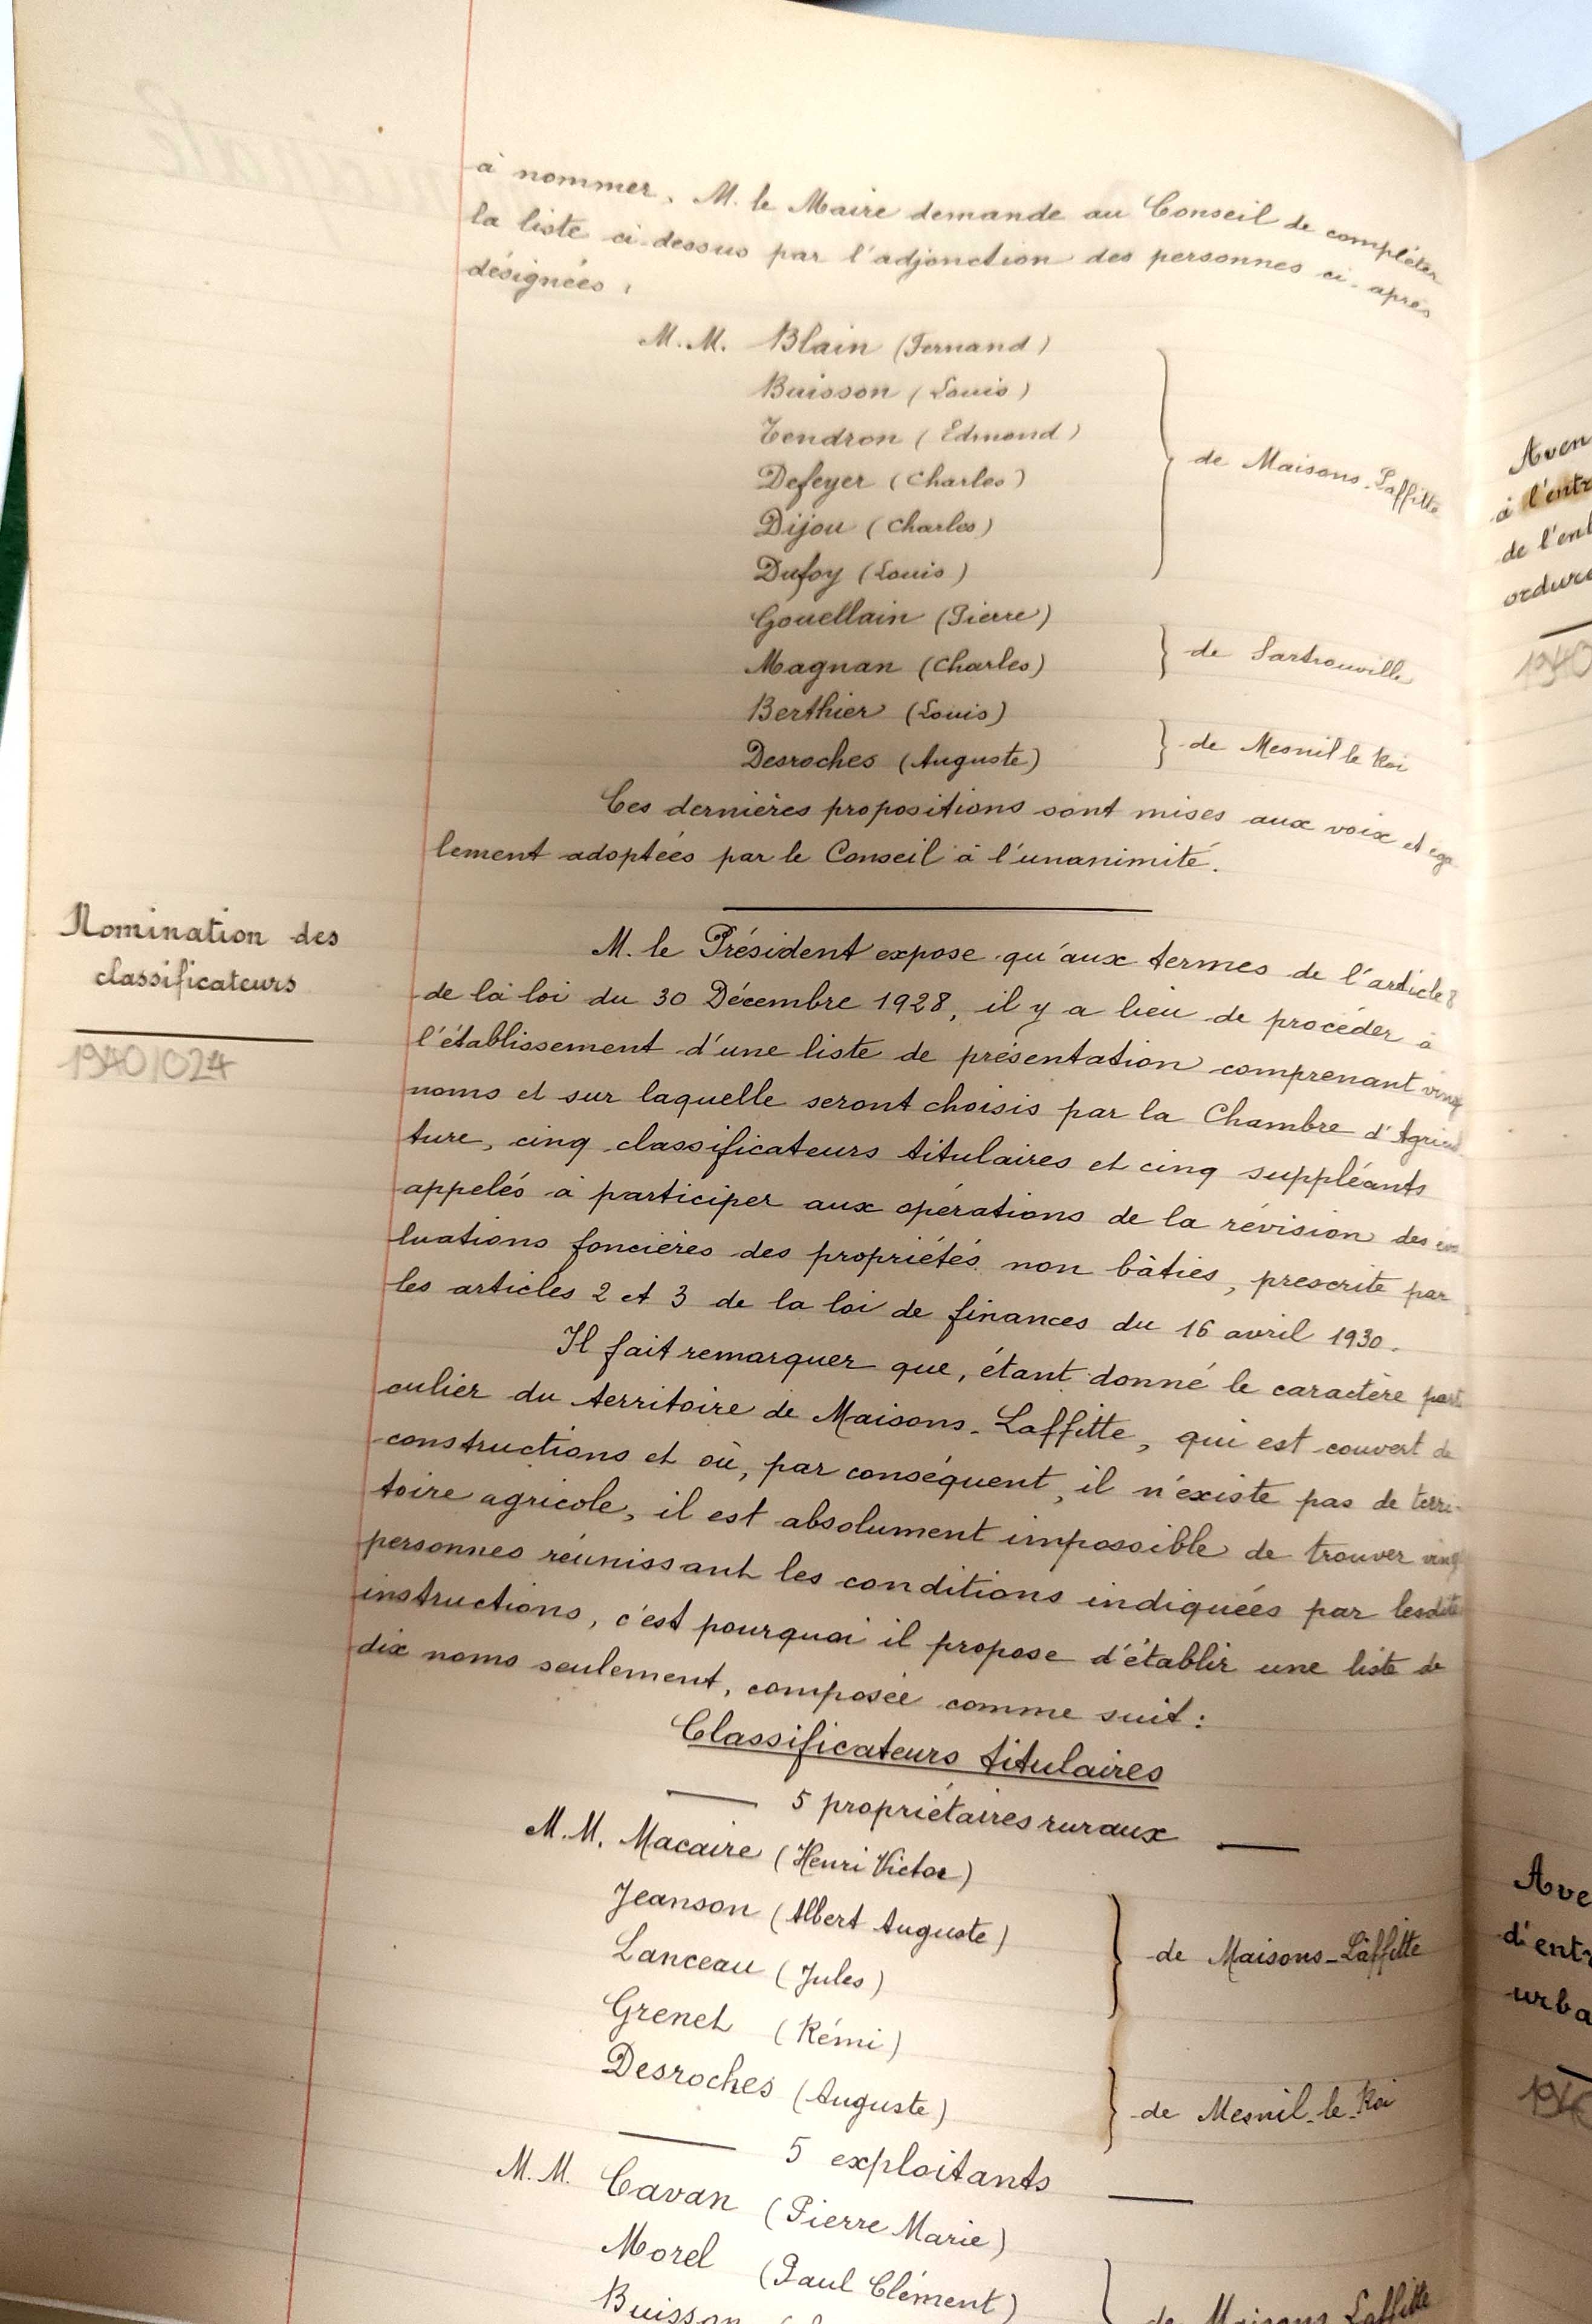 à nommer, M. le Maire demande au Conseil de compléter
la liste ci-dessus par l'adjonction des personnes ci-après
désignées :
M.M. Blain (Fernand)
Buisson (Louis)
Tendron (Edmond)
Defeyer (Charles)
de Maisons-Laffitte
Dijou (Charles)
Dufoy (Louis)
Gouellain (Pierre)
Magnan (Charles)
de Sartrouville
Berthier (Louis)
Desroches (Auguste)
de Mesnil le Roi
Ces dernières propositions sont mises aux voix et éga
lement adoptées par le Conseil à l'unanimité.
Nomination des
classificateurs
1940/024
M. le Président expose qu'aux termes de l'article 8
de la loi du 30 Décembre 1928, il y a lieu de procéder à
l'établissement d'une liste de présentation comprenant vingt
noms et sur laquelle seront choisis par la Chambre d'Agricul
ture, cinq classificateurs titulaires et cinq suppléants
appelés à participer aux opérations de la révision des éva
luations foncières des propriétés non bâties, prescrite par
les articles 2 et 3 de la loi de finances du 16 avril 1930.
Il fait remarquer que, étant donné le caractère parti
culier du territoire de Maisons-Laffitte, qui est couvert de
constructions et où, par conséquent, il n'existe pas de terri-
toire agricole, il est absolument impossible de trouver vingt
personnes réunissant les conditions indiquées par lesdites
instructions, c'est pourquoi il propose d'établir une liste de
dix noms seulement, composée comme suit :
Classificateurs titulaires
5 propriétaires ruraux
M.M. Macaire (Henri Victor)
Jeanson (Albert Auguste)
Lanceau (Jules)
de Maisons-Laffitte
Grenet (Rémi)
Desroches (Auguste)
de Mesnil-le-Roi
5 exploitants
M.M. Cavan (Pierre Marie)
Morel (Paul Clément)
Buisson
de Maisons Laffitte
Aven
à l'entr
de l'enl
ordure
1940
Ave
d'entr
urba
194